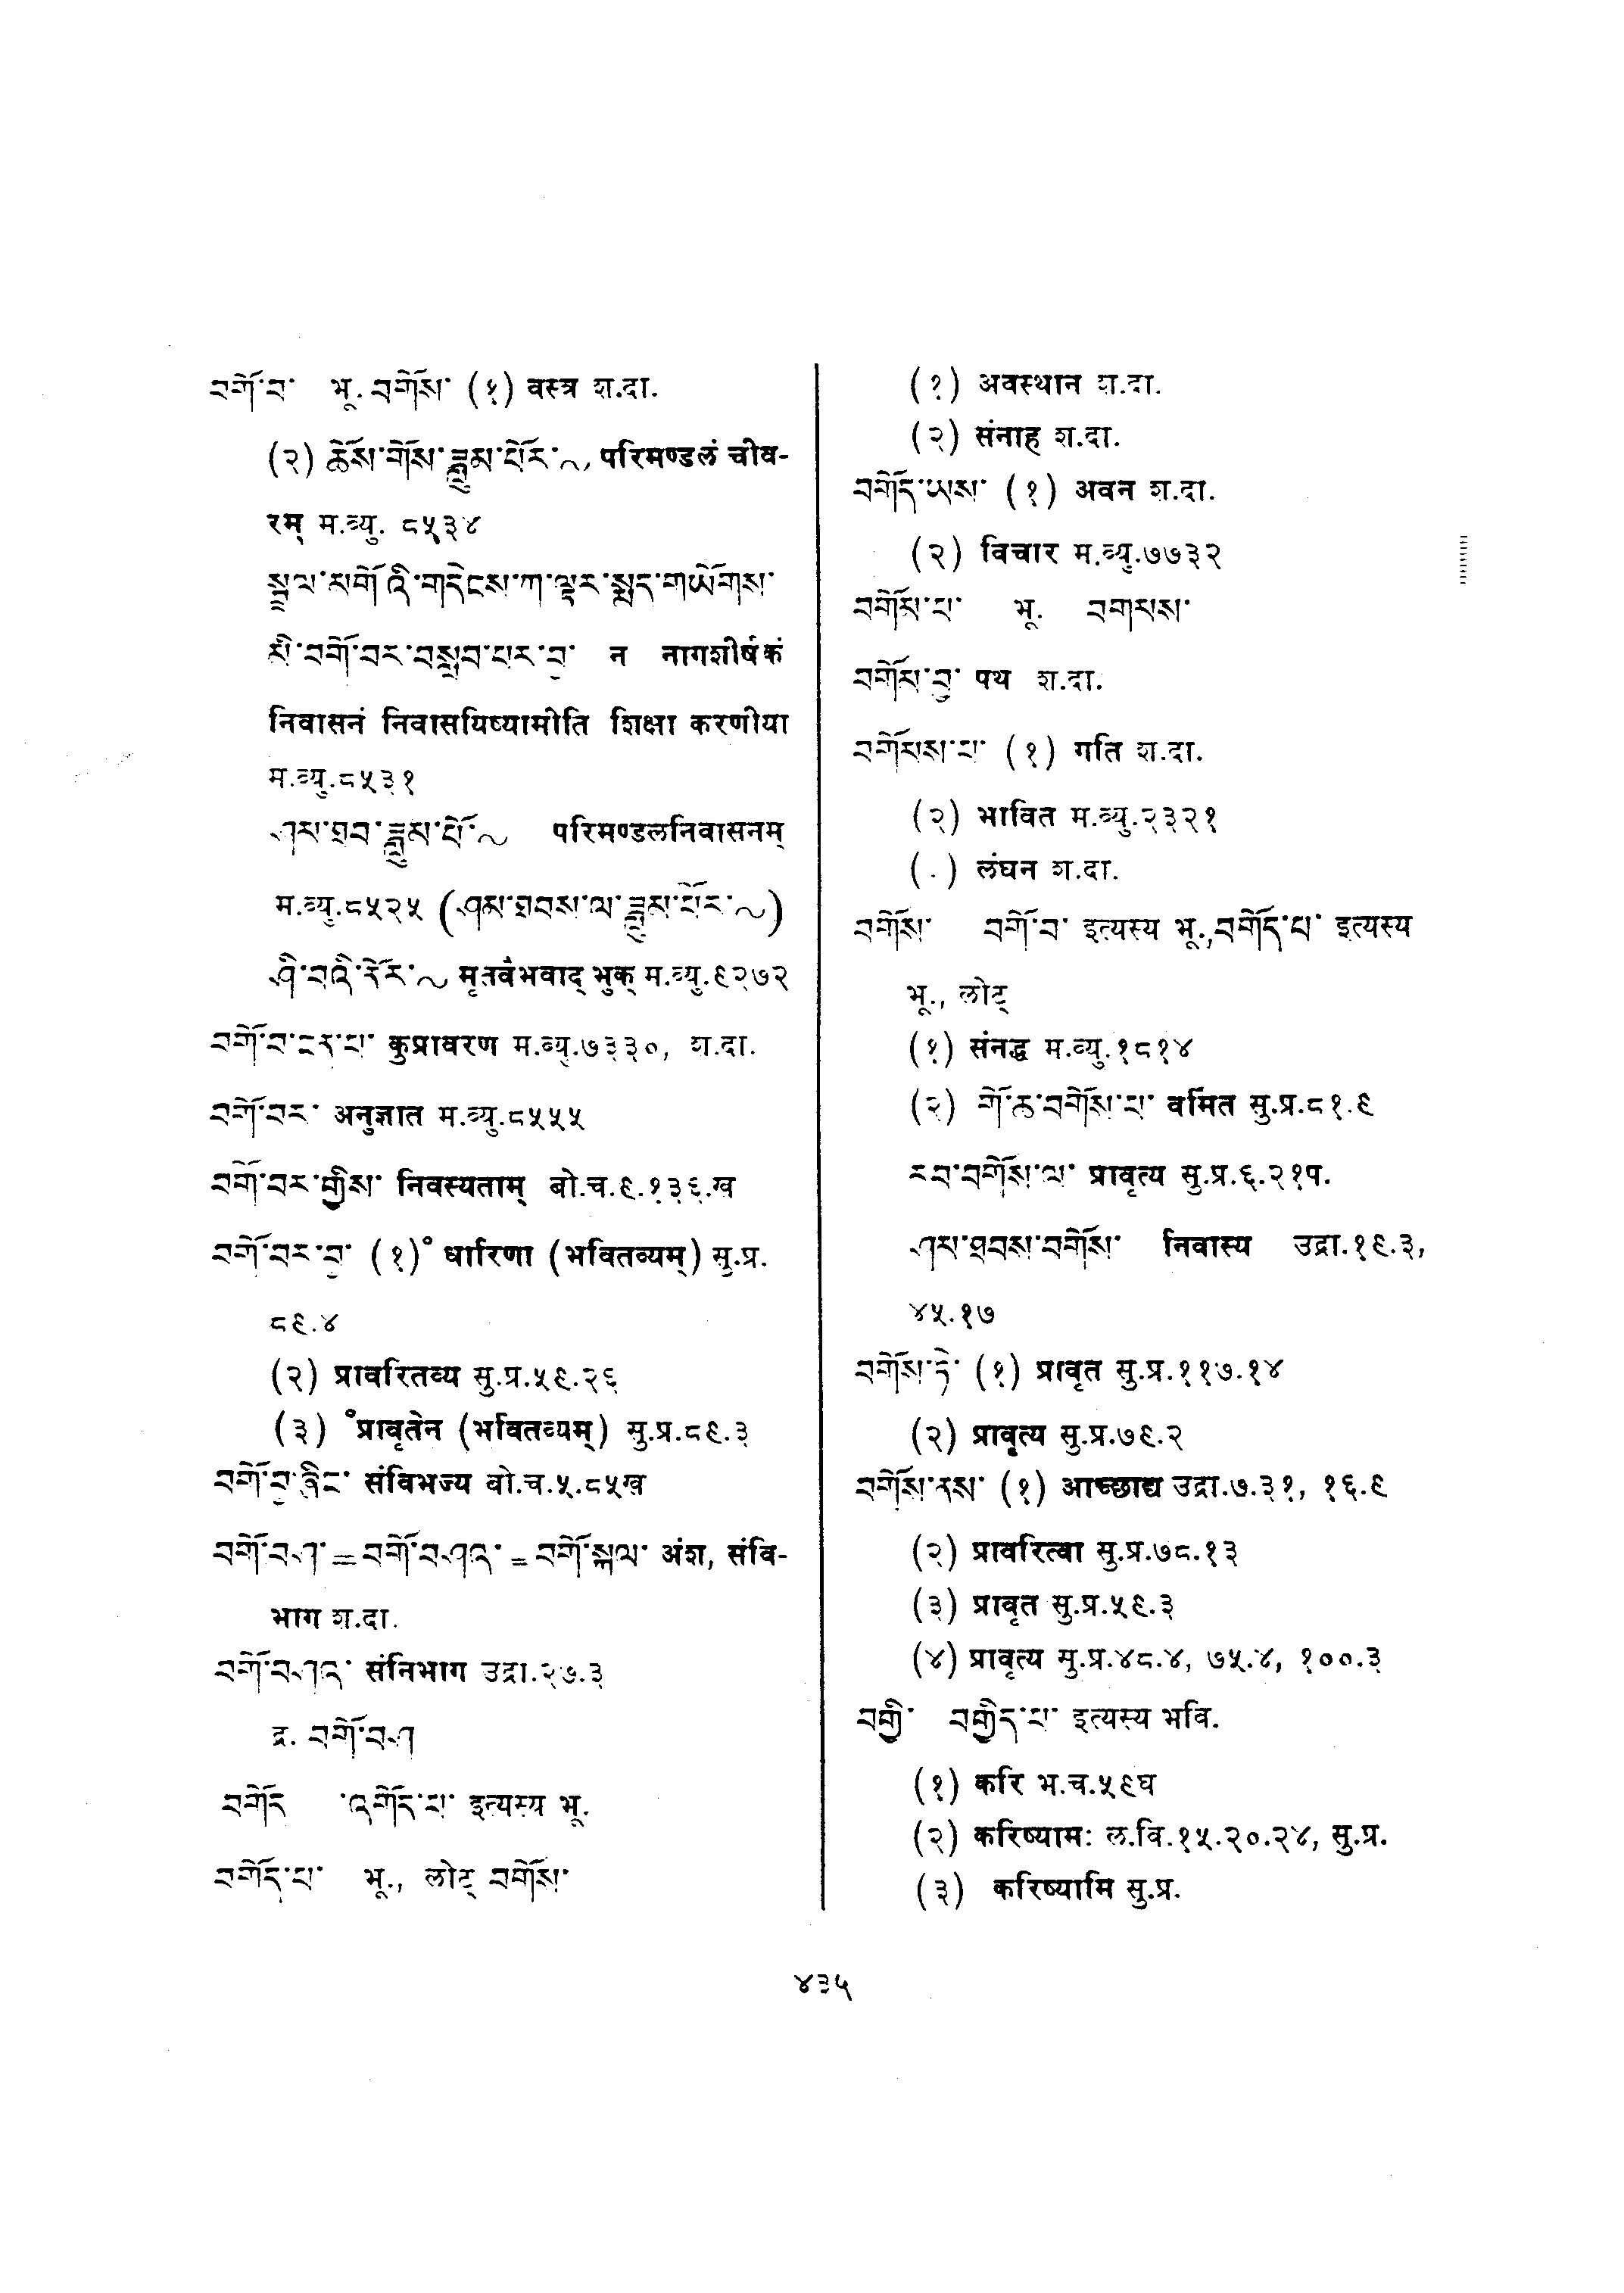 བགོ་བ་ भू. བགོས་ (१) वस्त्र श.दा.
(२) ཆོས་གོས་ཟླུམ་པོར་~ परिमण्डलं चीव-
रम् म.व्यु. ८५३४
སྦྲུལ་མགོའི་གདེངས་ཀ་ལྟར་སྨད་གཡོགས་
མི་བགོ་བར་བསླབ་པར་བྱ་ न नागशीर्षकं
निवासनं निवासयिष्यामीति शिक्षा करणीया
म.व्यु.८५३१
ཤམ་ཐབ་ཟླུམ་པོ་~ परिमण्डलनिवासनम्
म.व्यु.८५२५ (ཤམ་ཐབས་ལ་ཟླུམ་པོར་~)
ཤི་བའི་ནོར་~ मृतवंभवाद् भुक् म.व्यु.९२७२
བགོ་བ་ངན་པ་ कुप्रावरण म.व्यु.७३३०, श.दा.
བགོ་བར་ अनुज्ञात म.व्यु.८५५५
བགོ་བར་གྱིས་ निवस्यताम् बो.च.९.१३६.ख
བགོ་བར་བྱ་ (१)° धारिणा (भवितव्यम्) सु.प्र.
८९.४
(२) प्रावरितव्य सु.प्र.५९.२६
(३) °प्रावृतेन (भवितव्यम्) सु.प्र.८९.३
བགོ་བྱ་ཞིང་ संविभज्य बो.च.५.८५ख
བགོ་བཤ་ = བགོ་བཤའ་ = བགོ་སྐལ་ अंश, संवि-
भाग श.दा.
བགོ་བཤའ་ संनिभाग उद्रा.२७.३
द्र. བགོ་བཤ
བགོད འགོད་པ་ इत्यस्य भू.
བགོད་པ་ भू., लोट् བགོས་
(१) अवस्थान श.दा.
(२) संनाह श.दा.
བགོད་ཡས་ (१) अवन श.दा.
(२) विचार म.व्यु.७७३२
བགོམ་པ་ भू. བགམས་
བགོམ་བྱ་ पथ श.दा.
བགོམས་པ་ (१) गति श.दा.
(२) भावित म.व्यु.२३२१
(.) लंघन श.दा.
བགོས་ བགོ་བ་ इत्यस्य भू.,བགོད་པ་ इत्यस्य
भू., लोट्
(१) संनद्ध म.व्यु.१८१४
(२) གོ་ཆ་བགོས་པ་ वर्मित सु.प्र.८१.९
རབ་བགོས་ལ་ प्रावृत्य सु.प्र.६.२१प.
ཤམ་ཐབས་བགོས་ निवास्य उद्रा.१९.३,
४५.१७
བགོས་ཏེ་ (१) प्रावृत सु.प्र.११७.१४
(२) प्रावृत्य सु.प्र.७९.२
བགོས་ནས་ (१) आच्छाद्य उद्रा.७.३१, १६.९
(२) प्रावरित्वा सु.प्र.७८.१३
(३) प्रावृत सु.प्र.५९.३
(४) प्रावृत्य सु.प्र.४८.४, ७५.४, १००.३
བགྱི་ བགྱིད་པ་ इत्यस्य भवि.
(१) करि भ.च.५९घ
(२) करिष्यामः ल.वि.१५.२०.२४, सु.प्र.
(३) करिष्यामि सु.प्र.
४३५